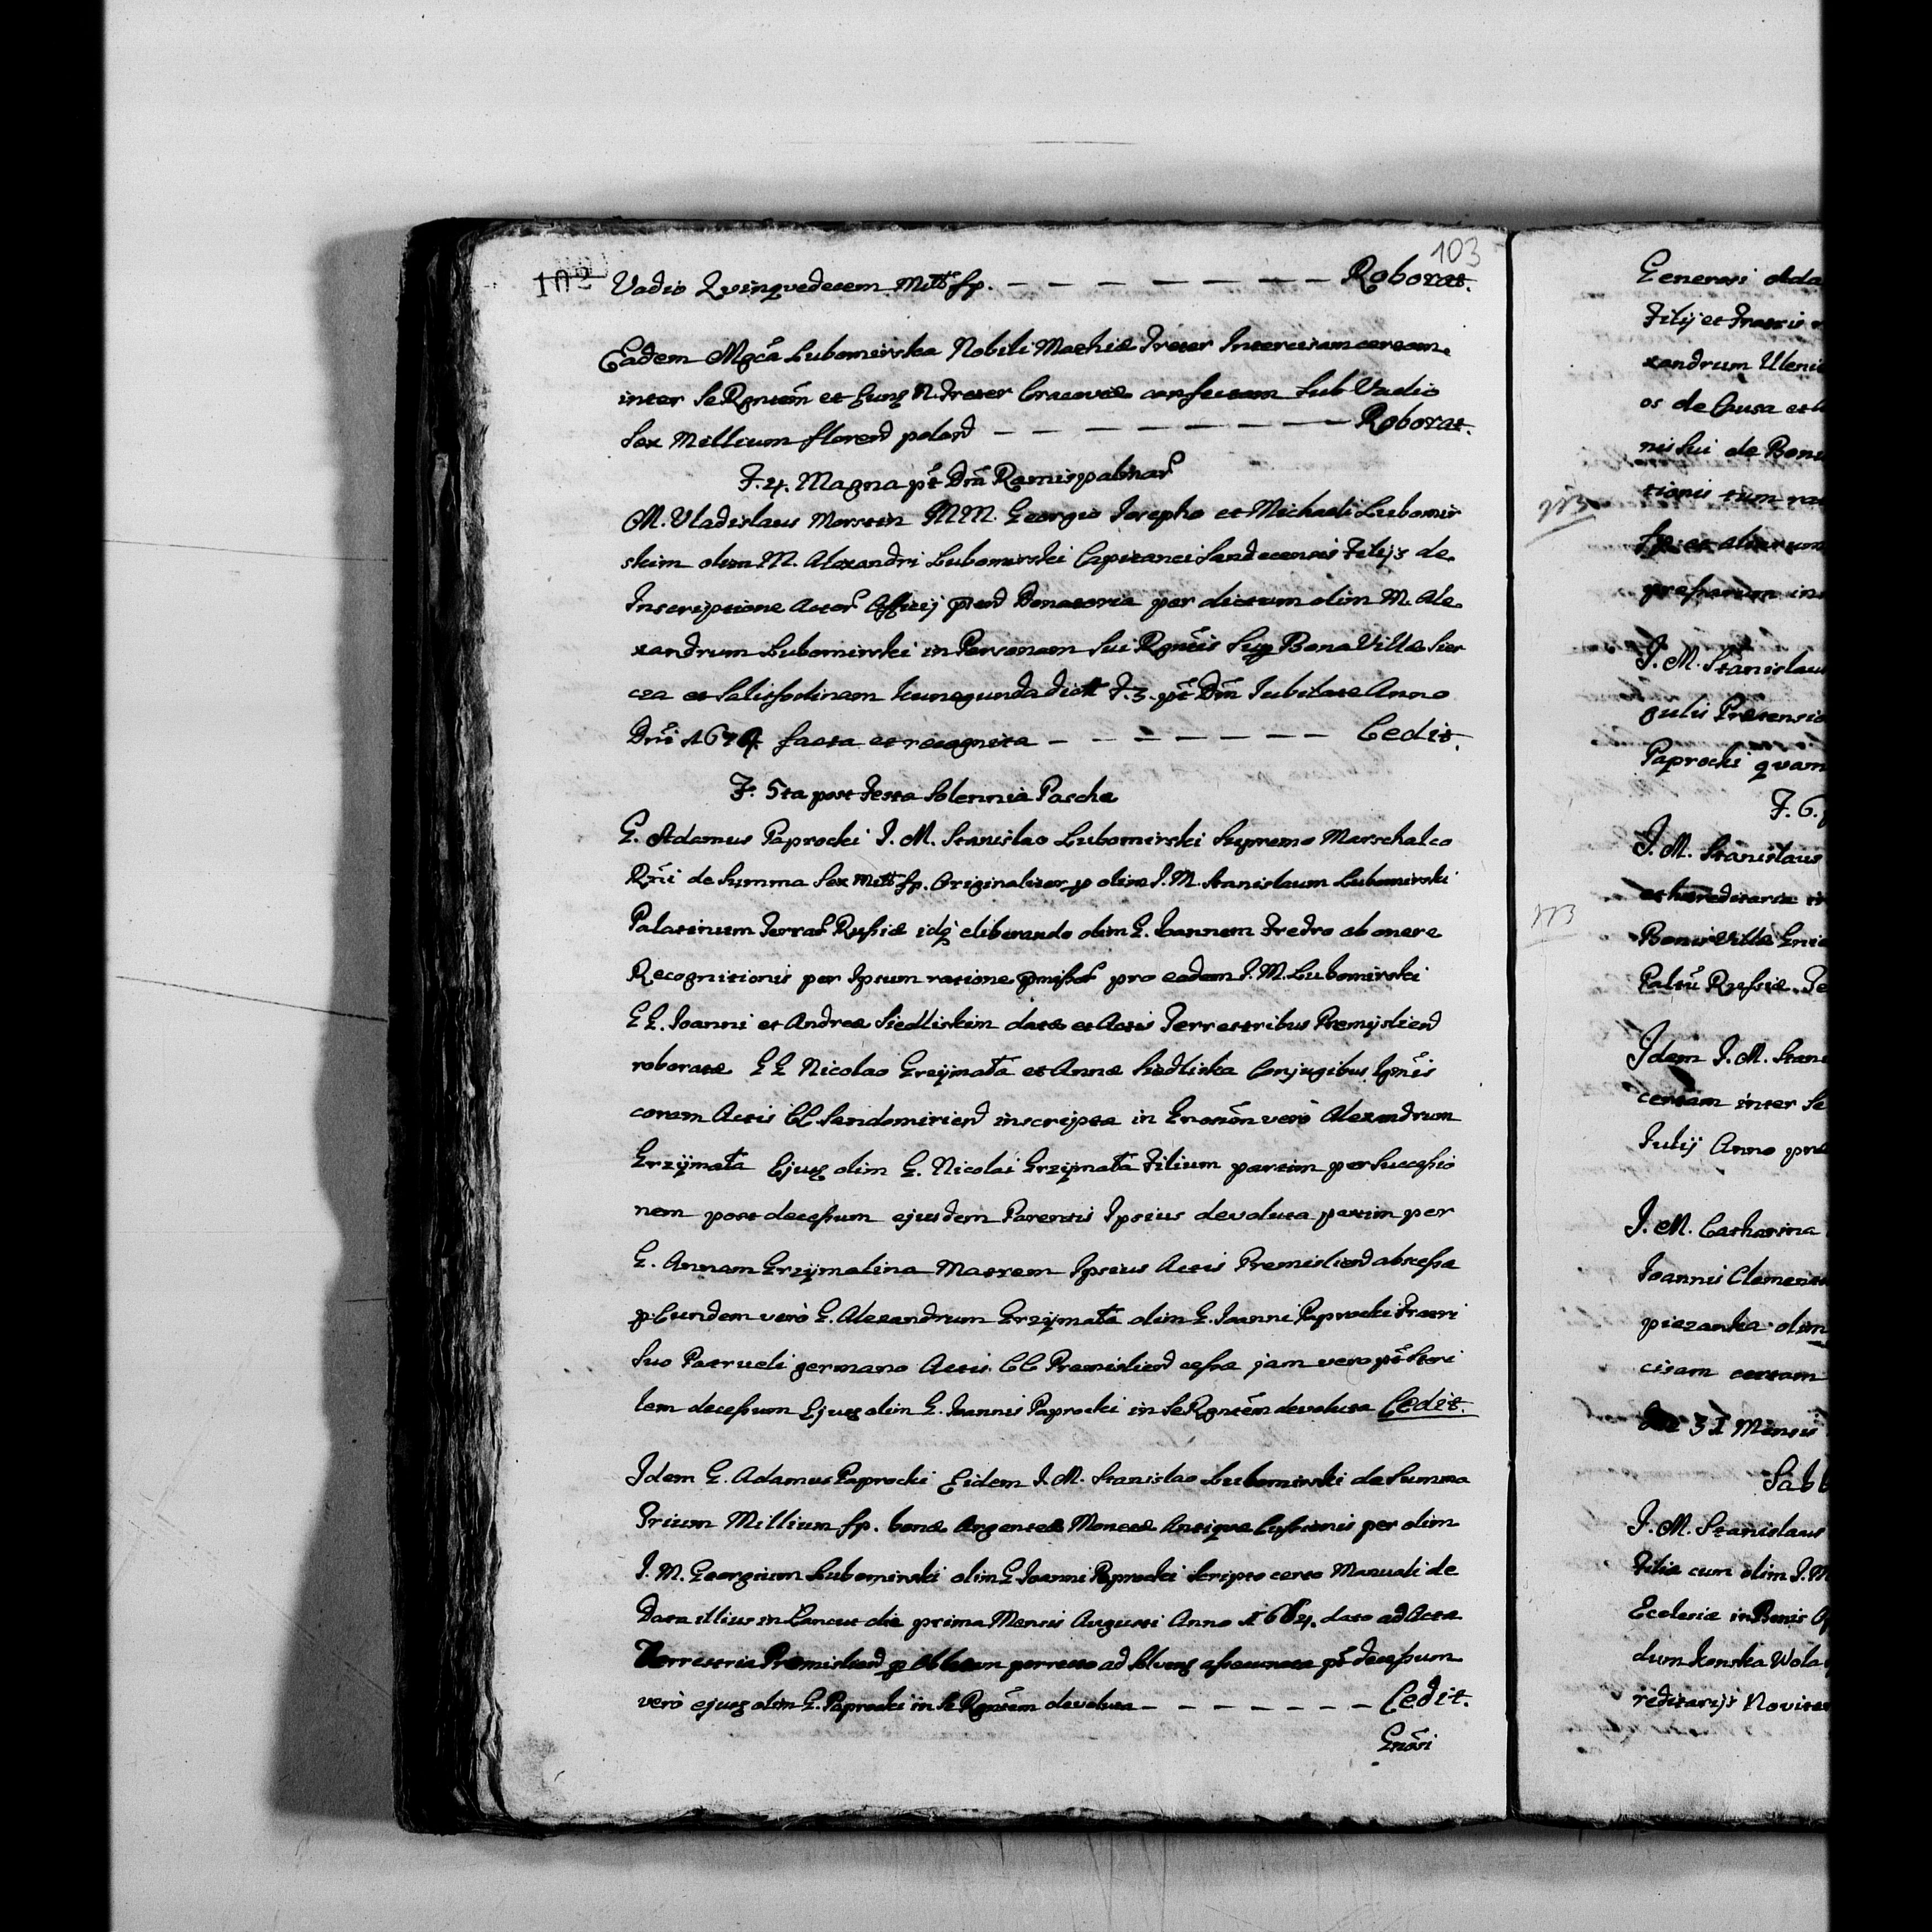 103
102 Vadio Qvinqvedecem Mille fp. – – – – – – – Roborat.
Eadem Mgca Lubomirska Nobili Mathiæ Treter Intercisam certam
inter Se Rgntem et Eunq N. Treter Cracoviæ confectam Sub Vadio
Sex Millium floren polon – – – – – – – – – Roborat.
F. 4. Magna pt Dnã Ramispalmar
M. Vladislaus Morstin MM. Georgio Josepho et Michaeli Lubomir
skim olim M. Alexandri Lubomirski Capitanei Sandecensis Filijs de
Inscriptione Actor Officij Donatoria per dictum olim M. Ale
xandrum Lubomirski in Personam Sui Rgntis Sup Bona Villæ Sier
cza et Salisfodinam Kunegunda dict F. 3. pt Dñm Jubilate Anno
Dni facta et recognita – – – – – – – Cedit.
F. 5ta post Festa Solennia Pascha
G. Adamus Paprocki I. M. Stanislao Lubomirski Supremo Marschalco
Rni de Summa Sex Mille fp. Originaliter p olim I. M. Stanislaum Lubomirski
Palatinum Terrar Russiæ idq eliberando olim G. Joannem Fredro ab onere
Recognitionis per Ipsum ratione pmissor pro eodem I. M. Lubomirski
GG. Joanni et Andreæ Siedliskim datæ et Actis Terrestribus Premyslien
roboratæ GG Nicolao Grzymała et Annæ Siedliska Conjugibus
coram Actis CC Sandomirien inscripta in Gnosum vero Alexandrum
Grzymała Ejusq olim G. Nicolai Grzymała Filium partim per Successio
nem post decessum ejusdem Parentis Ipsius devoluta partim per
G. Annam Grzymalina Matrem Ipsius Actis Premislien abscessa
p Eundem verò G. Alexandrum Grzymała olim G. Joanni Paprocki Fratri
Suo Patrueli germano Actis CC Premislien cessa jam vero pt Steri
lem decessum Ejusq olim G. Joannis Paprocki in Se Rgntem devoluta Cedit.
Idem G. Adamus Paprocki Eidem I. M. Stanislao Lubomirski de Summa
Trium Millium fp. bonæ Argenteæ Monetæ Antiqvæ Cussionis per olim
I. M. Georgium Lubomirski olim G Joanni Paprocki Scripto certo Manuali de
Data illius in Lancut die prima Mensis Augusti Anno dato ad Acta
Terrestria Premislien p Oblatam porrecto ad Solvenq pt Decessum
verò ejusq olim G. Paprocki in Se Rgntem devoluta – – – – – – – Cedit.
Gnosi
Generosi Ada
Filij et Fratris
xandrum Uleni
os de Causa et
nis Sui de Bon
tionis tum ra
NB
fp. et alterum
pressarum in
I. M. Stanislaus
gulis Prætensio
Paprocki qvam
F. 6.
I. M. Stanislaus
et hæreditariæ
NB
Bonis Villæ
Paltni Russiæ. Te
Idem I. M. Stan
certam inter Se
Julij Anno præ
I. M. Catharina
Joannis Clemen
piezanka olim
cisam certam
31 Mensis
Sabb
I. M. Stanislaus
Filiæ cum olim I. M
Ecclesiæ in Bonis
dum Konska Wola
reditarijs Noviter